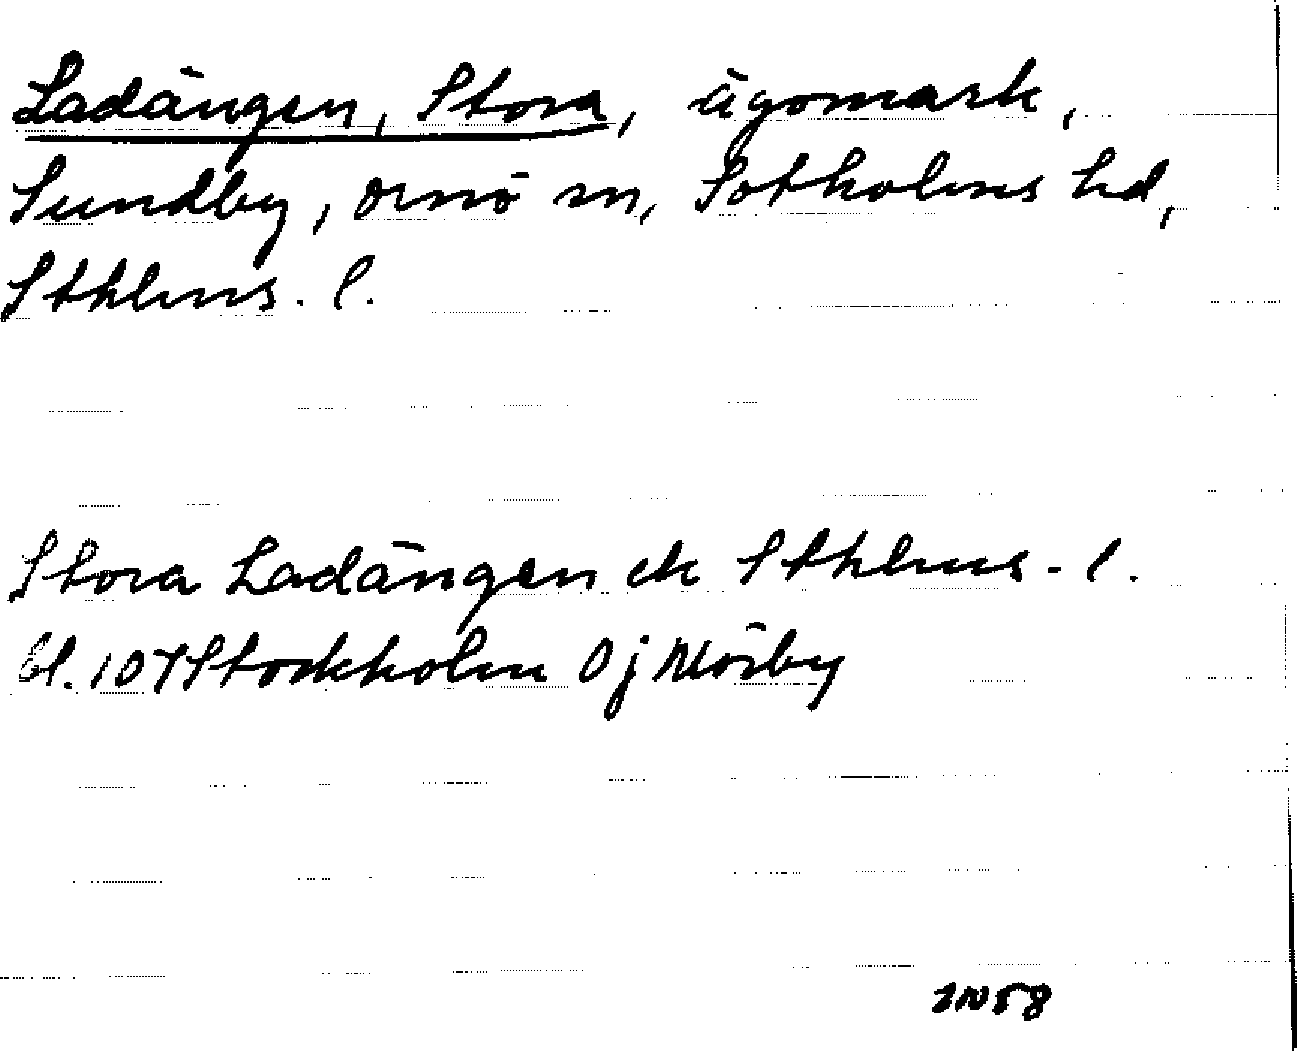 Ladängen, Stora, ägomark,
Sundby, Ornö sn, Sotholms hd,
Sthlms. l.
Stora Ladängen ek Sthlms - l.
bl. 107 Stockholm Oj Mörby
IN58